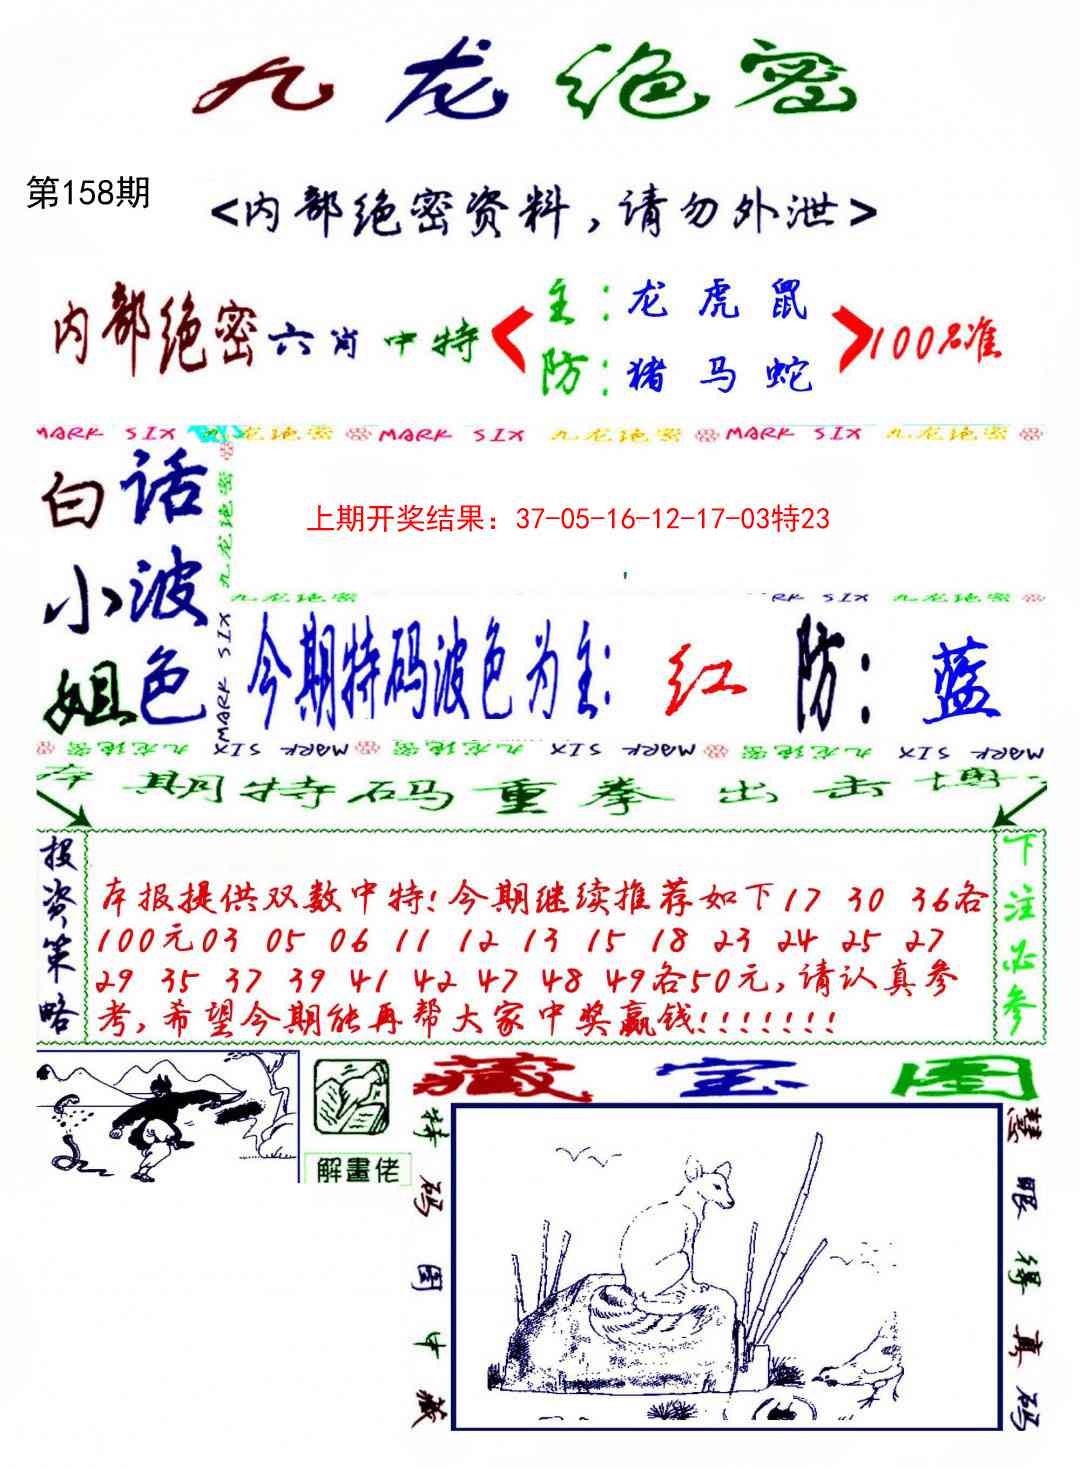 九龙绝密
第158期
<内部绝密资料,请勿外泄>
内部绝密六肖中特
主:龙 虎 鼠
防:猪 马 蛇
100%准
MARK SIX 九龙绝密 MARK SIX 九龙绝密 MARK SIX 九龙绝密
白小姐
话波色
九龙绝密
MARK SIX
上期开奖结果：37-05-16-12-17-03特23
九龙绝密
MARK SIX 九龙绝密
今期特码波色为主:红 防:蓝
九龙绝密 MARK SIX 九龙绝密 MARK SIX 九龙绝密 MARK SIX
本期特码重拳出击博
投资策略
本报提供双数中特!今期继续推荐如下17 30 36各
100元03 05 06 11 12 13 15 18 23 24 25 27
29 35 37 39 41 42 47 48 49各50元,请认真参
考,希望今期能再帮大家中奖赢钱!!!!!!!
下注必参
解畫佬
藏宝图
特码图中藏
慧眼得真码